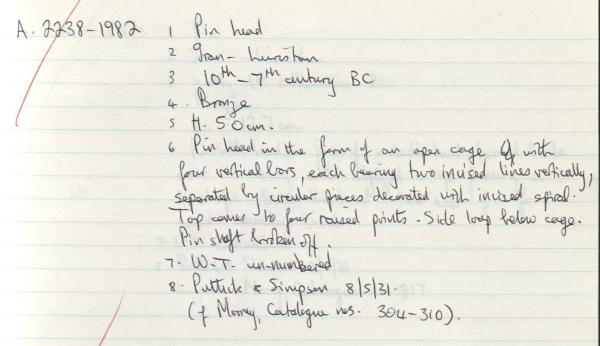 A. 2238-1982 1 Pin head
2 Iran - Luristan
3 10th - 7th century BC
4. Bronze
5 H. 5.0 cm.
6 Pin head in the form of an open cage with
four vertical bars, each bearing two incised lines vertically,
separated by circular pieces decorated with incised spiral.
Top comes to four raised points. Side loop below cage.
Pin shaft broken off.
7. W.T. un-numbered
8. Puttick & Simpson 8/5/31.
(cf Moorey, Catalogue nos. 304-310).